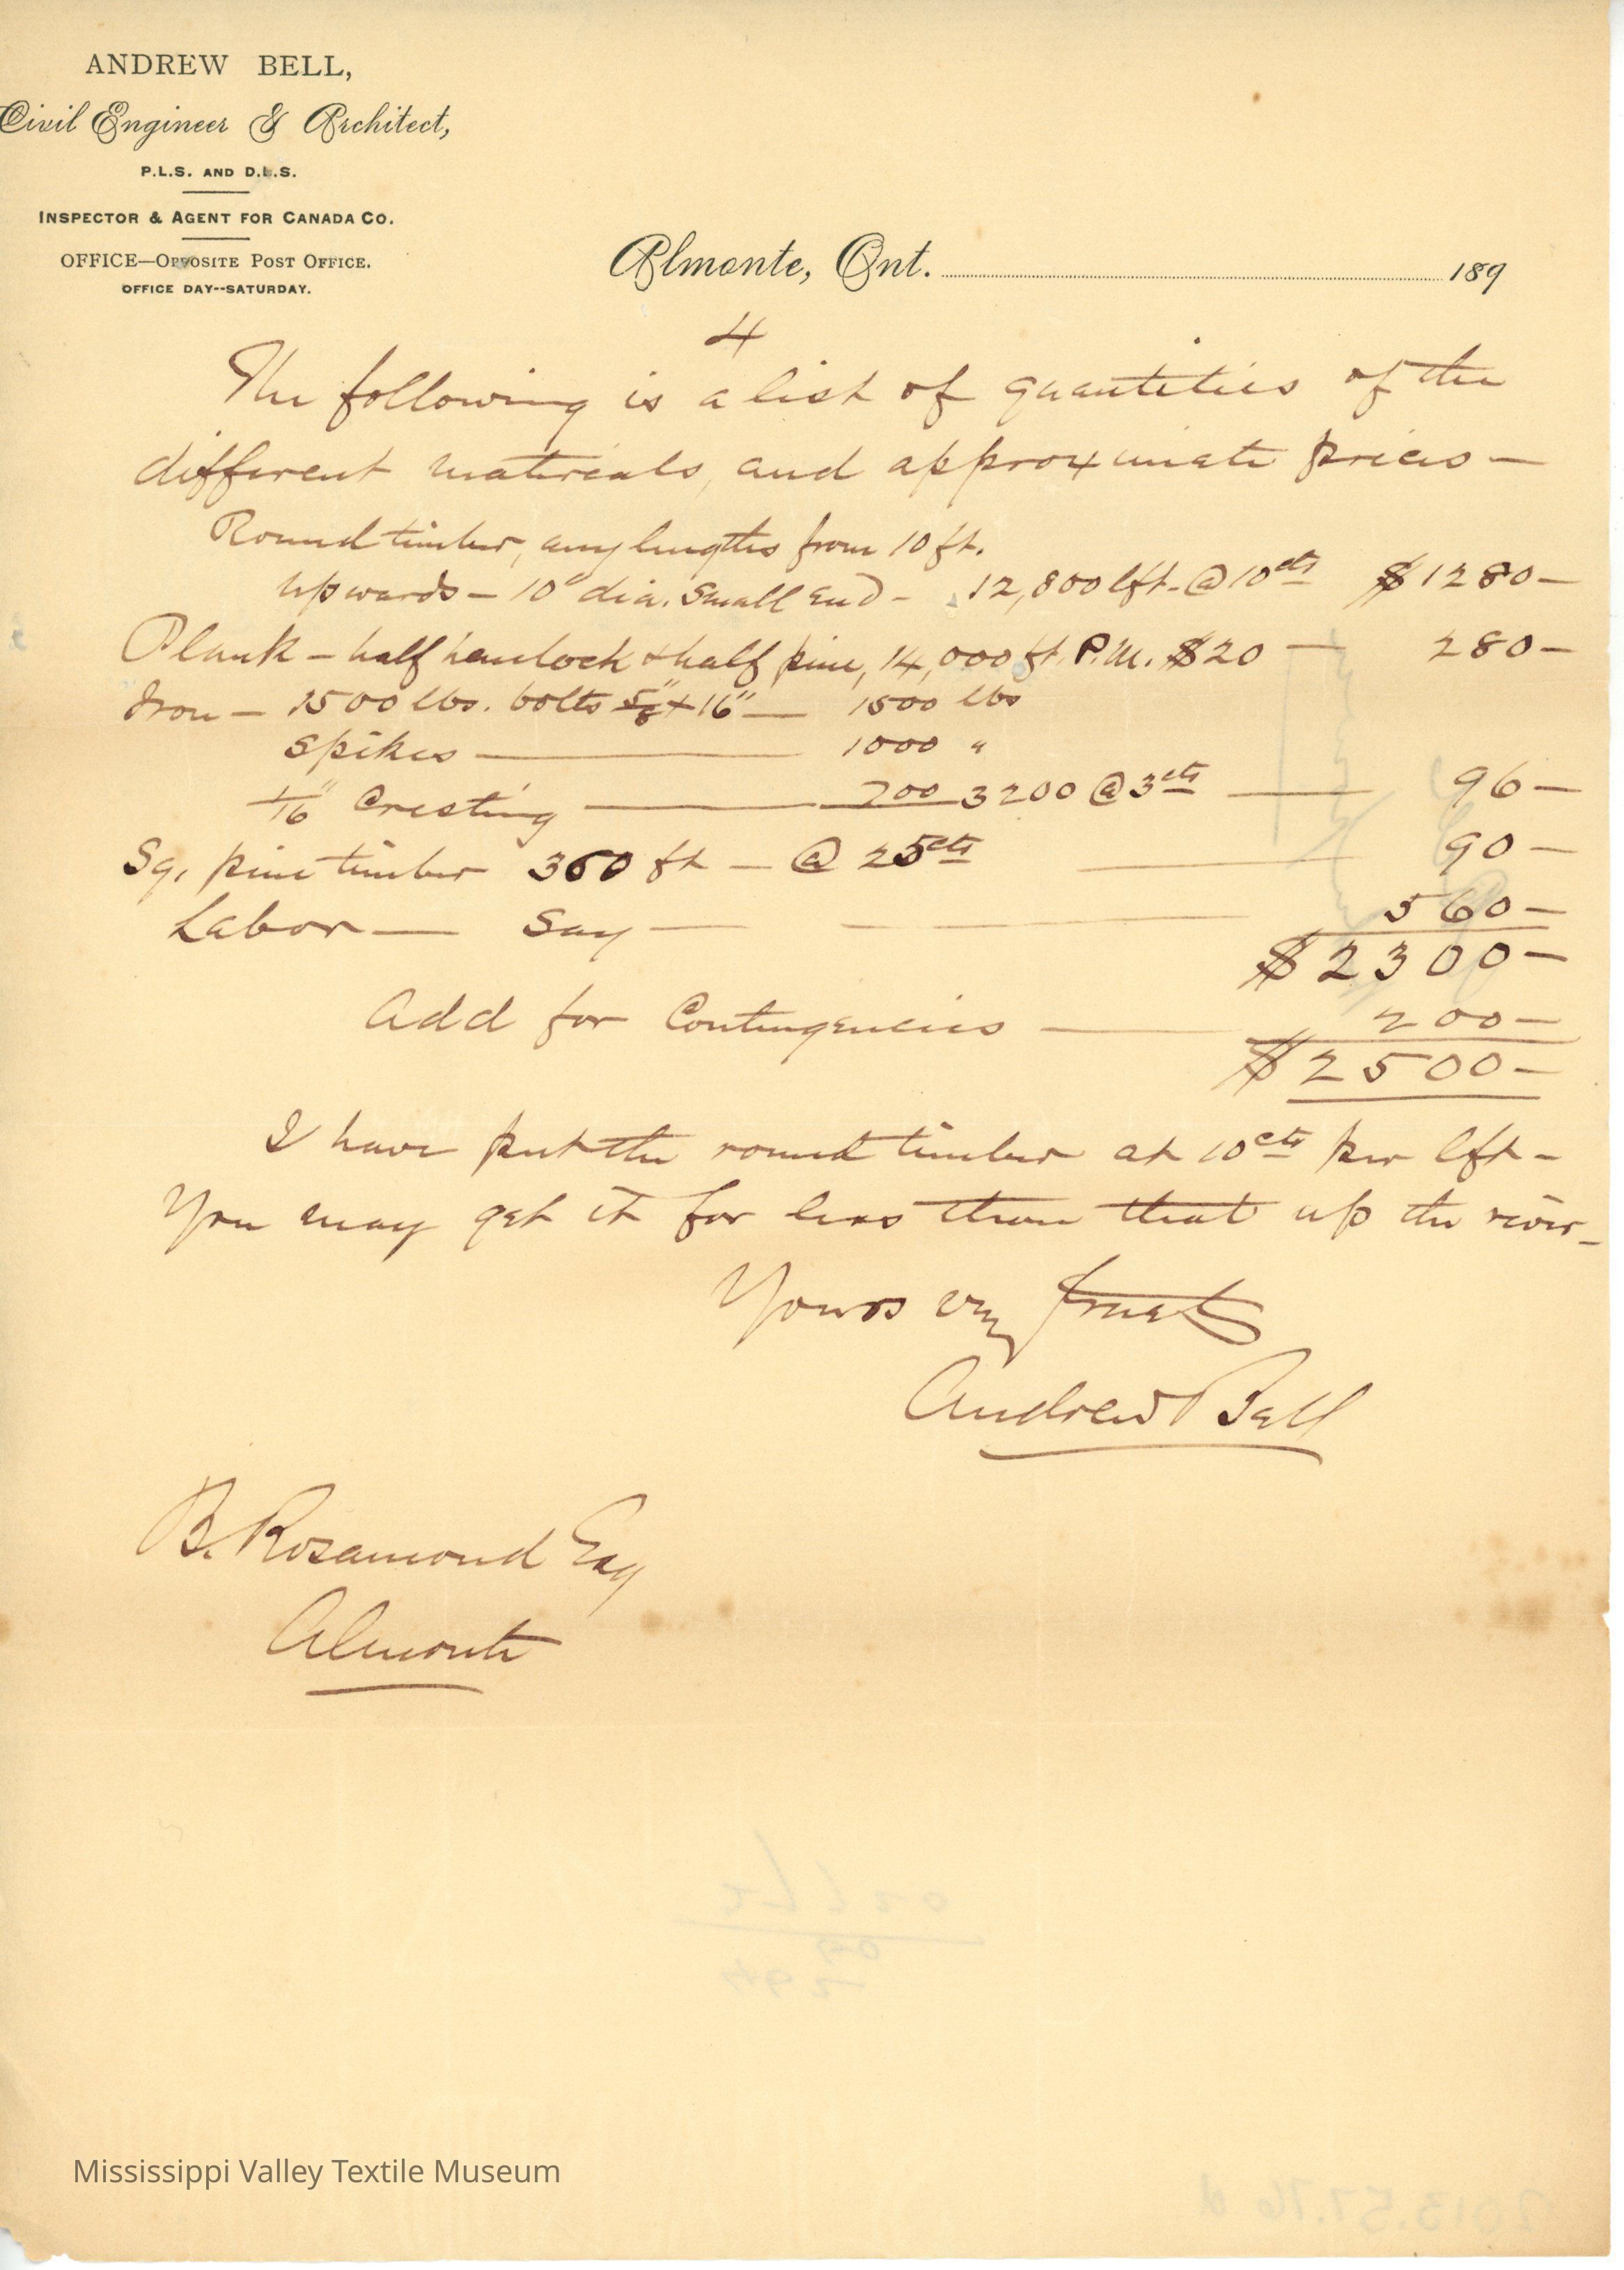 ANDREW BELL,
Civil Engineer & Architect,
P.L.S. AND D.L.S.
INSPECTOR & AGENT FOR CANADA CO.
OFFICE—OPPOSITE POST OFFICE.
OFFICE DAY--SATURDAY.
Almonte, Ont. 189
4
The following is a list of quantities of the
different materials, and approximate prices —
Round timber, any lengths from 10 ft.
upwards — 10" dia. small end — 12,800 lft. @ 10cts $1280—
Plank — half hemlock & half pine, 14,000 ft. P.M. $20 — 280—
Iron — 1500 lbs. bolts 5/8" + 16" — 1500 lbs
Spikes — 1000 "
1/16" Cresting — 700 3200 @ 3cts — 96—
Sq. pine timber 360 ft — @ 25cts — 90—
Labor — Say — 560—
$2300—
Add for Contingencies — 200—
$2500—
I have put the round timber at 10cts per lft —
You may get it for less than that up the river —
Yours very truly
Andrew Bell
B. Rosamond Esq
Almonte
Mississippi Valley Textile Museum
2013.57.76 d